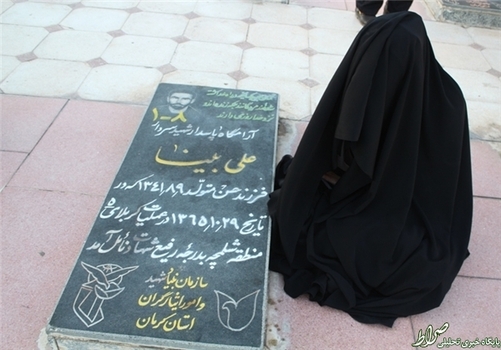 ۱-۸
آرامگاه پاسدار شهید سردار
علی بینا
فرزند حسن متولد ۱۳۴۱،۸،۹ که در
تاریخ ۱۳۶۵،۱۰،۲۹ در عملیات کربلای ۵
منطقه شلمچه بدرجه رفیع شهادت نائل آمد
سازمان بنیاد شهید
و امور ایثارگران
استان کرمان
صراط
پایگاه خبری تحلیلی